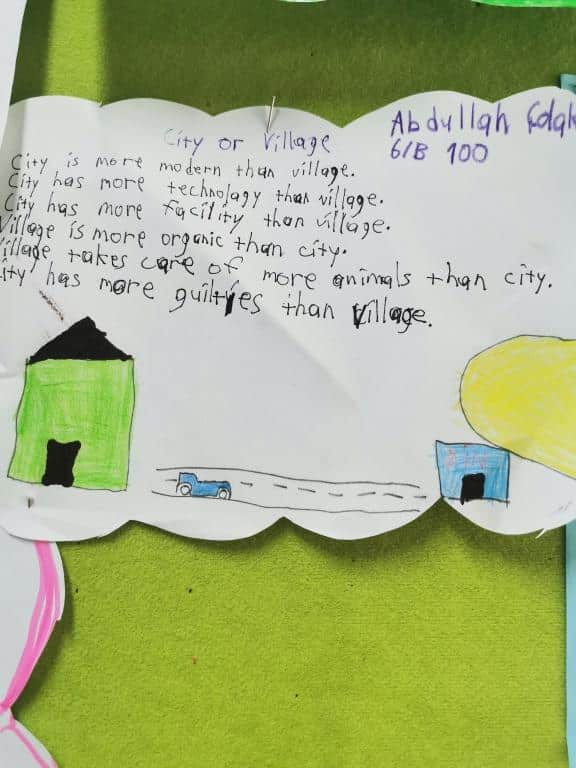 City or Village
Abdullah
6/B 100
City is more modern than village.
City has more technology than village.
City has more facility than village.
Village is more organic than city.
Village takes care of more animals than city.
City has more guiltyes than village.